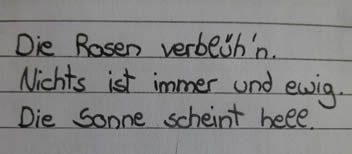 Die Rosen verblüh'n.
Nichts ist immer und ewig.
Die Sonne scheint hell.